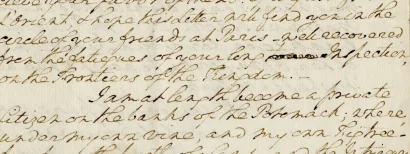 l'Orient. I hope this letter will find you in the
circle of your friends at Paris, well recovered
from the fatigues of your long Inspection
on the Frontiers of the Kingdom.—
I am at length become a private
Citizen on the banks of the Potomack, where
under my own vine, and my own Fig tree—